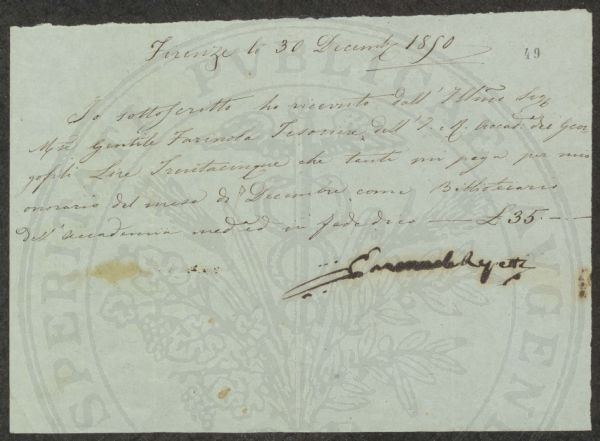 Firenze lì 30 Decembre 1850
49
Io sottoscritto ho ricevuto dall' Illmo Sig.
Mse Gentile Farinola Tesoriere dell' I. R. Accad. dei Geor
gofili Lire Trentacinque che tante mi paga per mio
onorario del mese di Decembre come Bibliotecario
dell' Accademia med.a ed in fede dico — £ 35. —
Emanuele Repetti